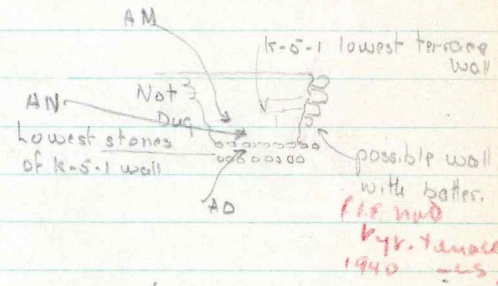 AM
K-5-1 lowest terrace
wall
AN
Not
Dug
Lowest stones
of K-5-1 wall
AO
possible wall
with batter.
Pyr. Terrace
1940